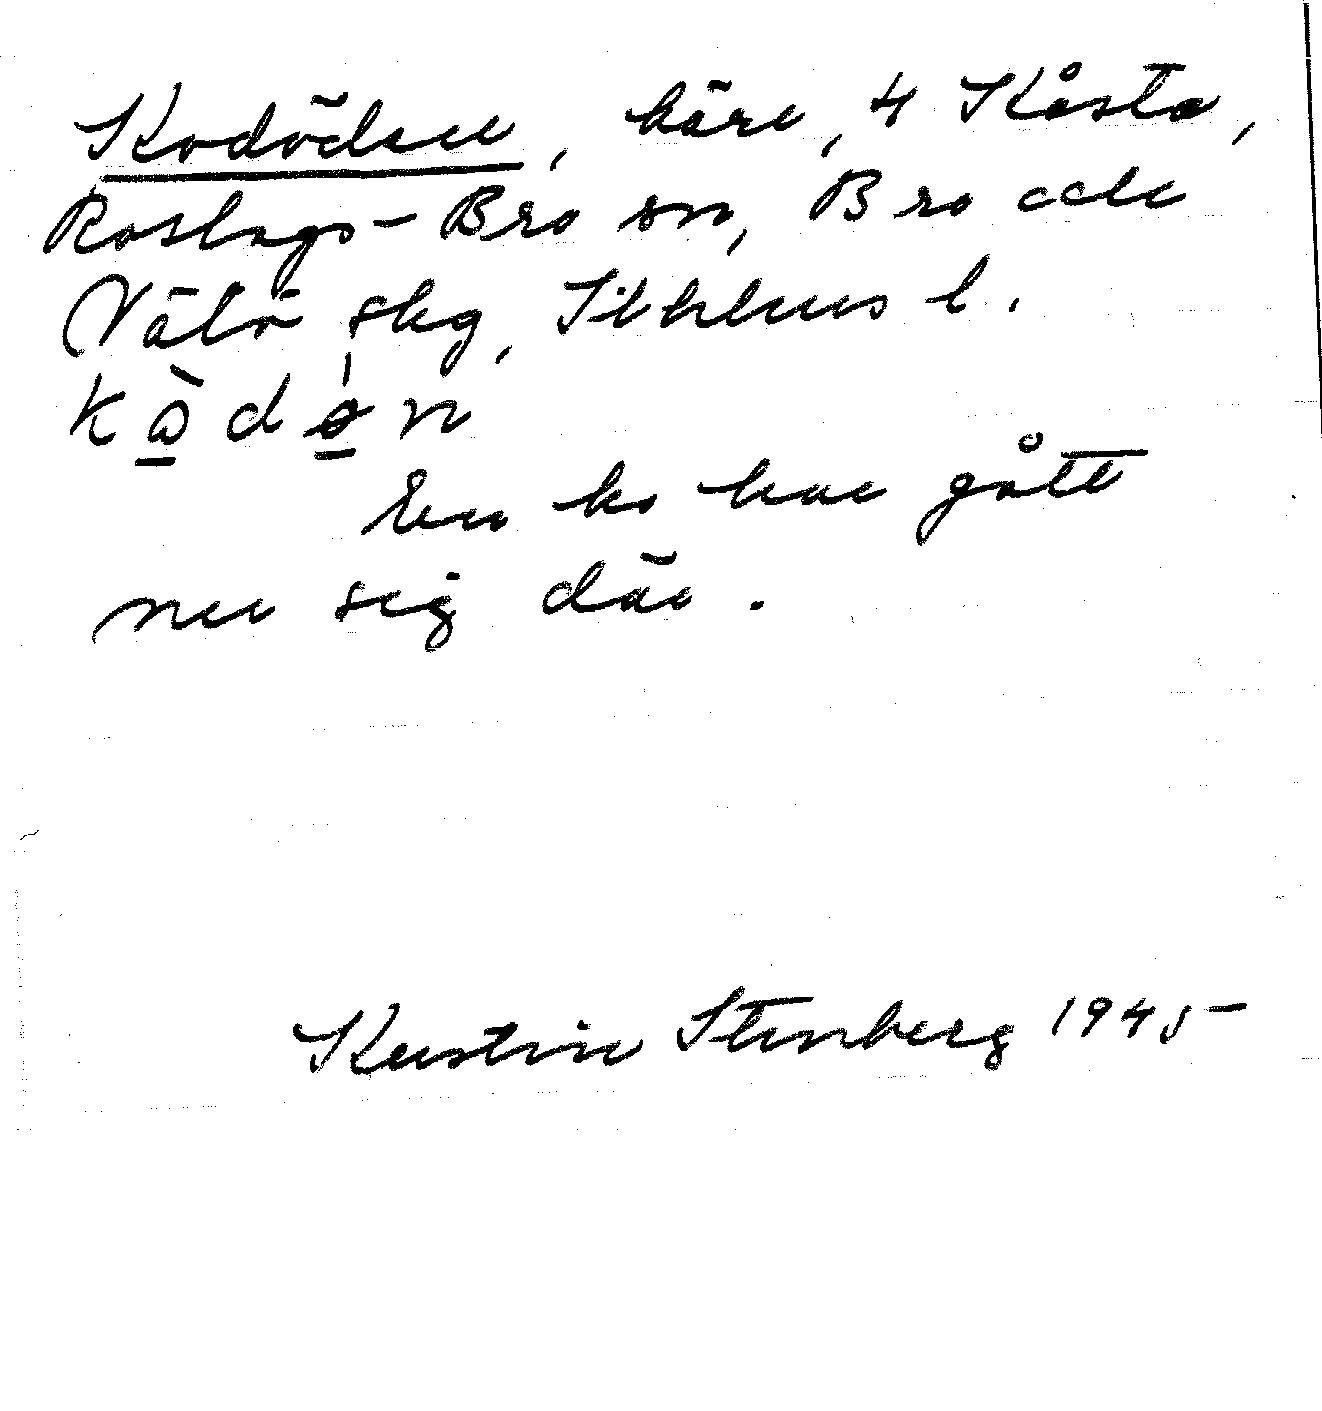 Kodöden, kärr, 4 Kåsta,
Roslags-Bro sn, Bro och
Vätö skg, Sthlms l.
kàdøn
En ko har gått
ner sig där.
Kerstin Stenberg 1945